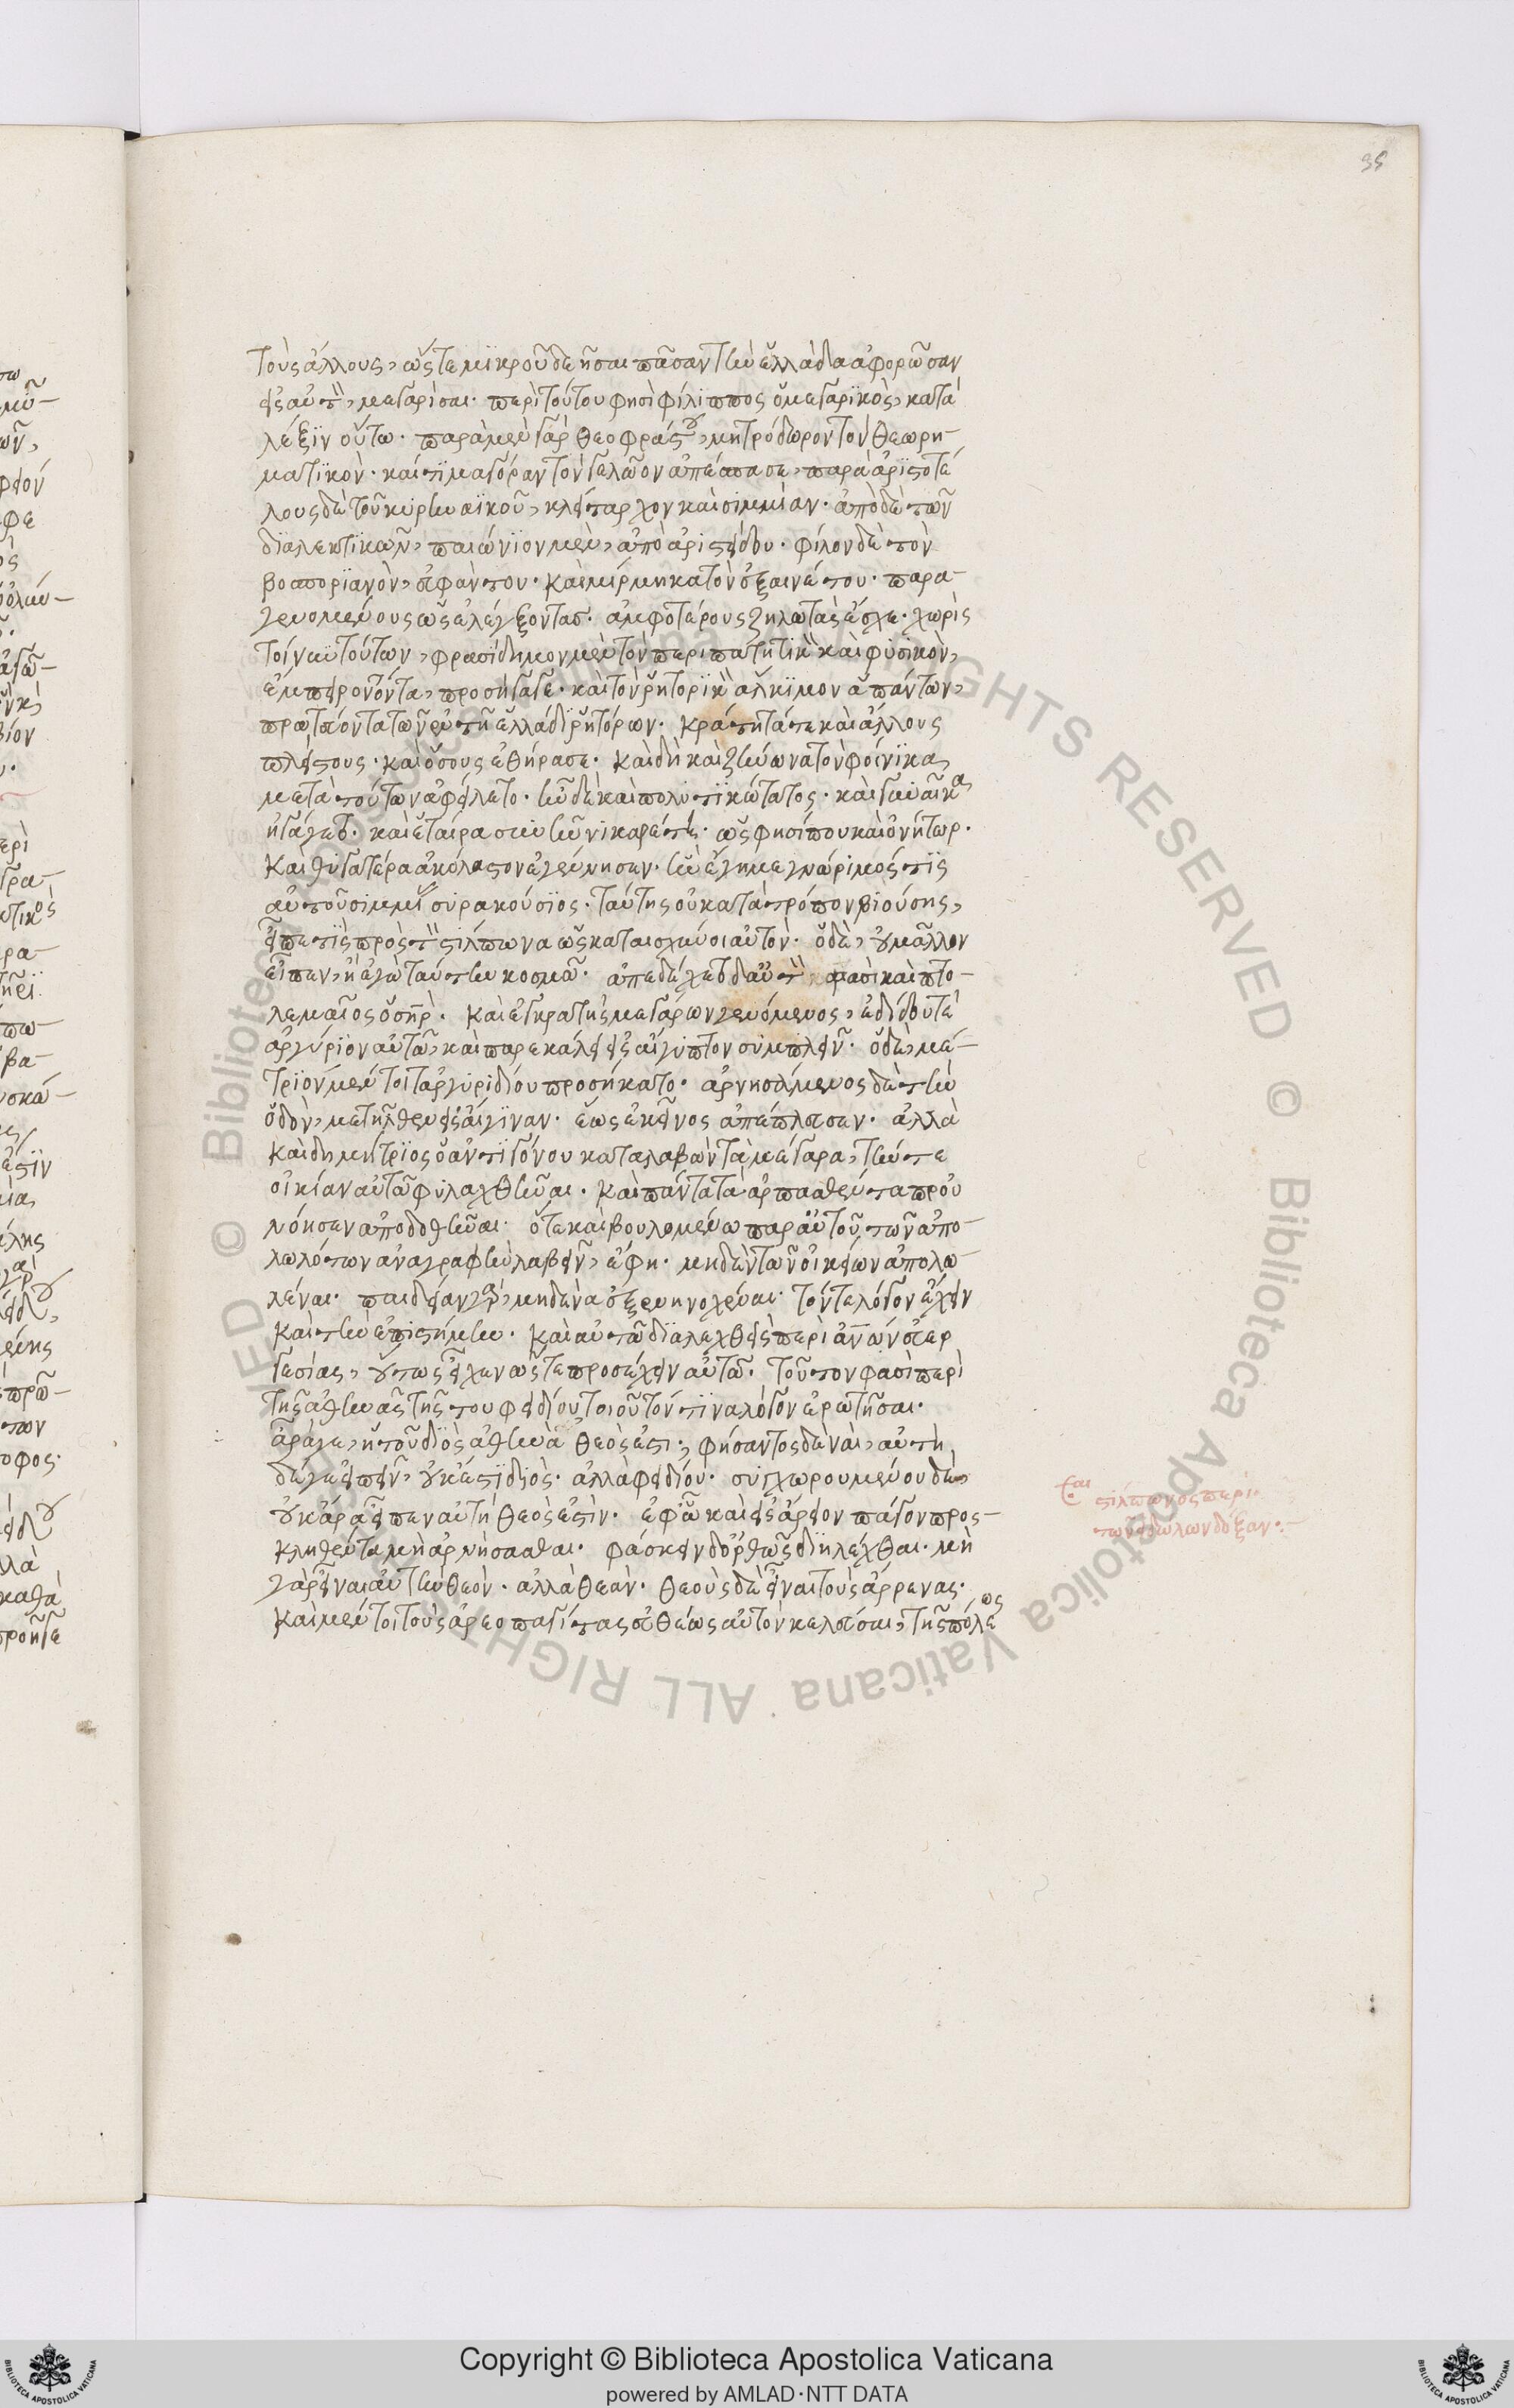 35
τοὺς ἄλλους, ὥστε μικροῦ δεῆσαι πᾶσαν τὴν ἑλλάδα ἀφορῶσαν
εἰς αὐτὸν, μεγαρίσαι. περὶ τούτου φησὶ φίλιππος ὁ μεγαρικὸς, κατὰ
λέξιν οὕτω. παρὰ μὲν γὰρ θεοφράστου, μητρόδωρον τὸν θεωρη-
ματικὸν. καὶ τιμαγόραν τὸν γελῶον ἀπέσπασε, παρὰ ἀριστοτέ
λους δὲ τοῦ κυρηναϊκοῦ, κλείταρχον καὶ σιμμίαν. ἀπὸ δὲ τῶν
διαλεκτικῶν, παιώνιον μὲν, ἀπὸ ἀριστείδου. φίλον δὲ τὸν
βοσποριανὸν, εὐφάντου. καὶ μύρμηκα τὸν ἐξαινέτου. παρα-
γενομένους ὡς ἐλέγξοντας. ἀμφοτέρους ζηλωτὰς ἔσχε. χωρὶς
τοίνυν τούτων, φρασίδημον μὲν τὸν περιπατητικὸν καὶ φυσικὸν,
ἔμπειρον ὄντα, προσήγαγε. καὶ τὸν ῥητορικὸν ἄλκιμον ἁπάντων,
πρωτεύοντα τῶν ἐν τῇ ἑλλάδι ῥητόρων. κράτητά τε καὶ ἄλλους
πλείστους. καὶ ὅσους ἐθήρασε. καὶ δὴ καὶ ζήνωνα τὸν φοίνικα,
μετὰ τούτων ἀφείλετο. ἦν δὲ καὶ πολιτικώτατος. καὶ γυναῖκα
ἠγάγετο. καὶ ἑταίρα συνῆν νικαρέτῃ. ὥς φησί που καὶ ὀνήτωρ.
καὶ θυγατέρα ἀκόλαστον ἐγέννησεν. ἣν ἔγημε γνώριμός τις
αὐτοῦ σιμμίας συρακούσιος. ταύτης οὐ κατὰ τρόπον βιούσης,
εἶπέ τις πρὸς τὸν στίλπωνα ὡς καταισχύνοι αὐτὸν. ὁ δὲ, οὐ μᾶλλον
εἶπεν, ἢ ἐγὼ ταύτην κοσμῶ. ἀπεδέχετο δ' αὐτὸν φασὶ καὶ πτο-
λεμαῖος ὁ σωτήρ. καὶ ἐγκρατὴς μεγάρων γενόμενος, ἐδίδου τε
ἀργύριον αὐτῶ, καὶ παρεκάλει εἰς αἴγυπτον συμπλεῖν. ὁ δὲ, μέ-
τριον μέν τοι τἀργυριδίου προσήκατο. ἀρνησάμενος δὲ τὴν
ὁδὸν, μετῆλθεν εἰς αἴγιναν. ἕως ἐκεῖνος ἀπέπλευσεν. ἀλλὰ
καὶ δημήτριος ὁ ἀντιγόνου καταλαβὼν τὰ μέγαρα, τήν τε
οἰκίαν αὐτῶ φυλαχθῆναι. καὶ πάντα τὰ ἁρπασθέντα προὐ
νόησεν ἀποδοθῆναι. ὅτε καὶ βουλομένω παρ' αὐτοῦ τῶν ἀπο-
λωλότων ἀναγραφὴν λαβεῖν, ἔφη. μηδὲν τῶν οἰκείων ἀπολω-
λέναι. παιδείαν γὰρ, μηδένα ἐξενηνοχέναι. τόν τε λόγον ἔχειν
καὶ τὴν ἐπιστήμην. καὶ αὐτῶ διαλεχθεὶς περὶ ἀνων εὐερ
γεσίας, οὕτως εἷλεν ὥστε προσέχειν αὐτῶ. τοῦτον φασὶ περὶ
τῆς ἀθηνᾶς τῆς του φειδίου τοιοῦτόν τινα λόγον ἐρωτῆσαι.
ἆράγε, ἡ τοῦ διὸς ἀθηνᾶ θεός ἐστι; φήσαντος δὲ ναὶ, αὐτὴ
δέ γε εἶπεν, οὐκ ἔστι διὸς. ἀλλὰ φειδίου. συγχωρουμένου δὲ,
οὐκ ἄρα εἶπεν αὐτὴ θεός ἐστὶν. ἐφ' ᾧ καὶ εἰς ἄρειον πάγον προς-
κληθέντα μὴ ἀρνήσασθαι. φάσκειν δ' ὀρθῶς διηλέχθαι. μὴ
γὰρ εἶναι αὐτὴν θεὸν. ἀλλὰ θεὰν. θεοὺς δὲ εἶναι τοὺς ἄρρενας.
καὶ μέν τοι τοὺς ἀρεοπαγίτας εὐθέως αὐτὸν κελεῦσαι, τῆς πόλεως
στίλπωνος περὶ
τῶν εἰδώλων δόξαν
Copyright © Biblioteca Apostolica Vaticana
powered by AMLAD·NTT DATA